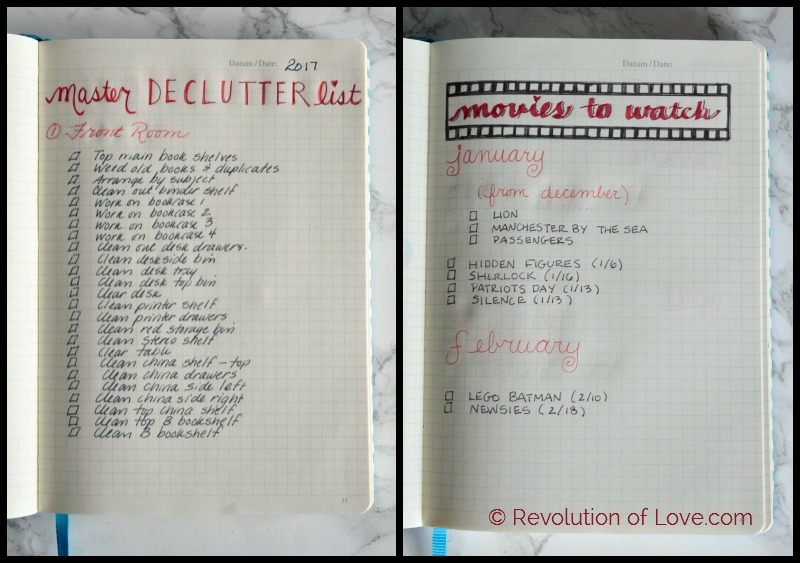 Datum / Date: 2017
master DECLUTTER list
① Front Room
Top main book shelves
Weed old books & duplicates
Arrange by subject
Clean out binder shelf
Work on bookcase 1
Work on bookcase 2
Work on bookcase 3
Work on bookcase 4
Clean out desk drawers.
Clean deskside bin
Clean desk tray
Clean desk top bin
Clear desk
Clean printer shelf
Clean printer drawers
Clean red storage bin
Clean stereo shelf
Clear table
Clean china shelf - top
Clean china drawers
Clean china side left
Clean china side right
Clean top china shelf
Clean top B bookshelf
Clean B bookshelf
31
Datum / Date:
movies to watch
january
(from december)
LION
MANCHESTER BY THE SEA
PASSENGERS
HIDDEN FIGURES (1/6)
SHERLOCK (1/16)
PATRIOTS DAY (1/13)
SILENCE (1/13)
february
LEGO BATMAN (2/10)
NEWSIES (2/18)
© Revolution of Love.com